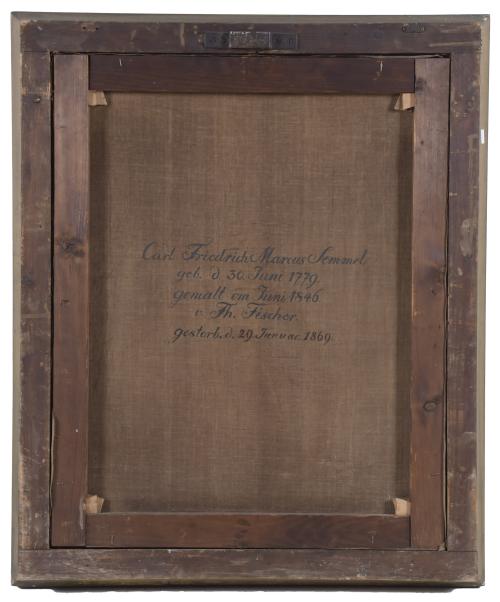 Carl Friedrich Marcus Semmel
geb. d. 30. Juni 1779.
gemalt im Juni 1846
v. Th. Fischer.
gestorb. d. 29. Januar 1869.